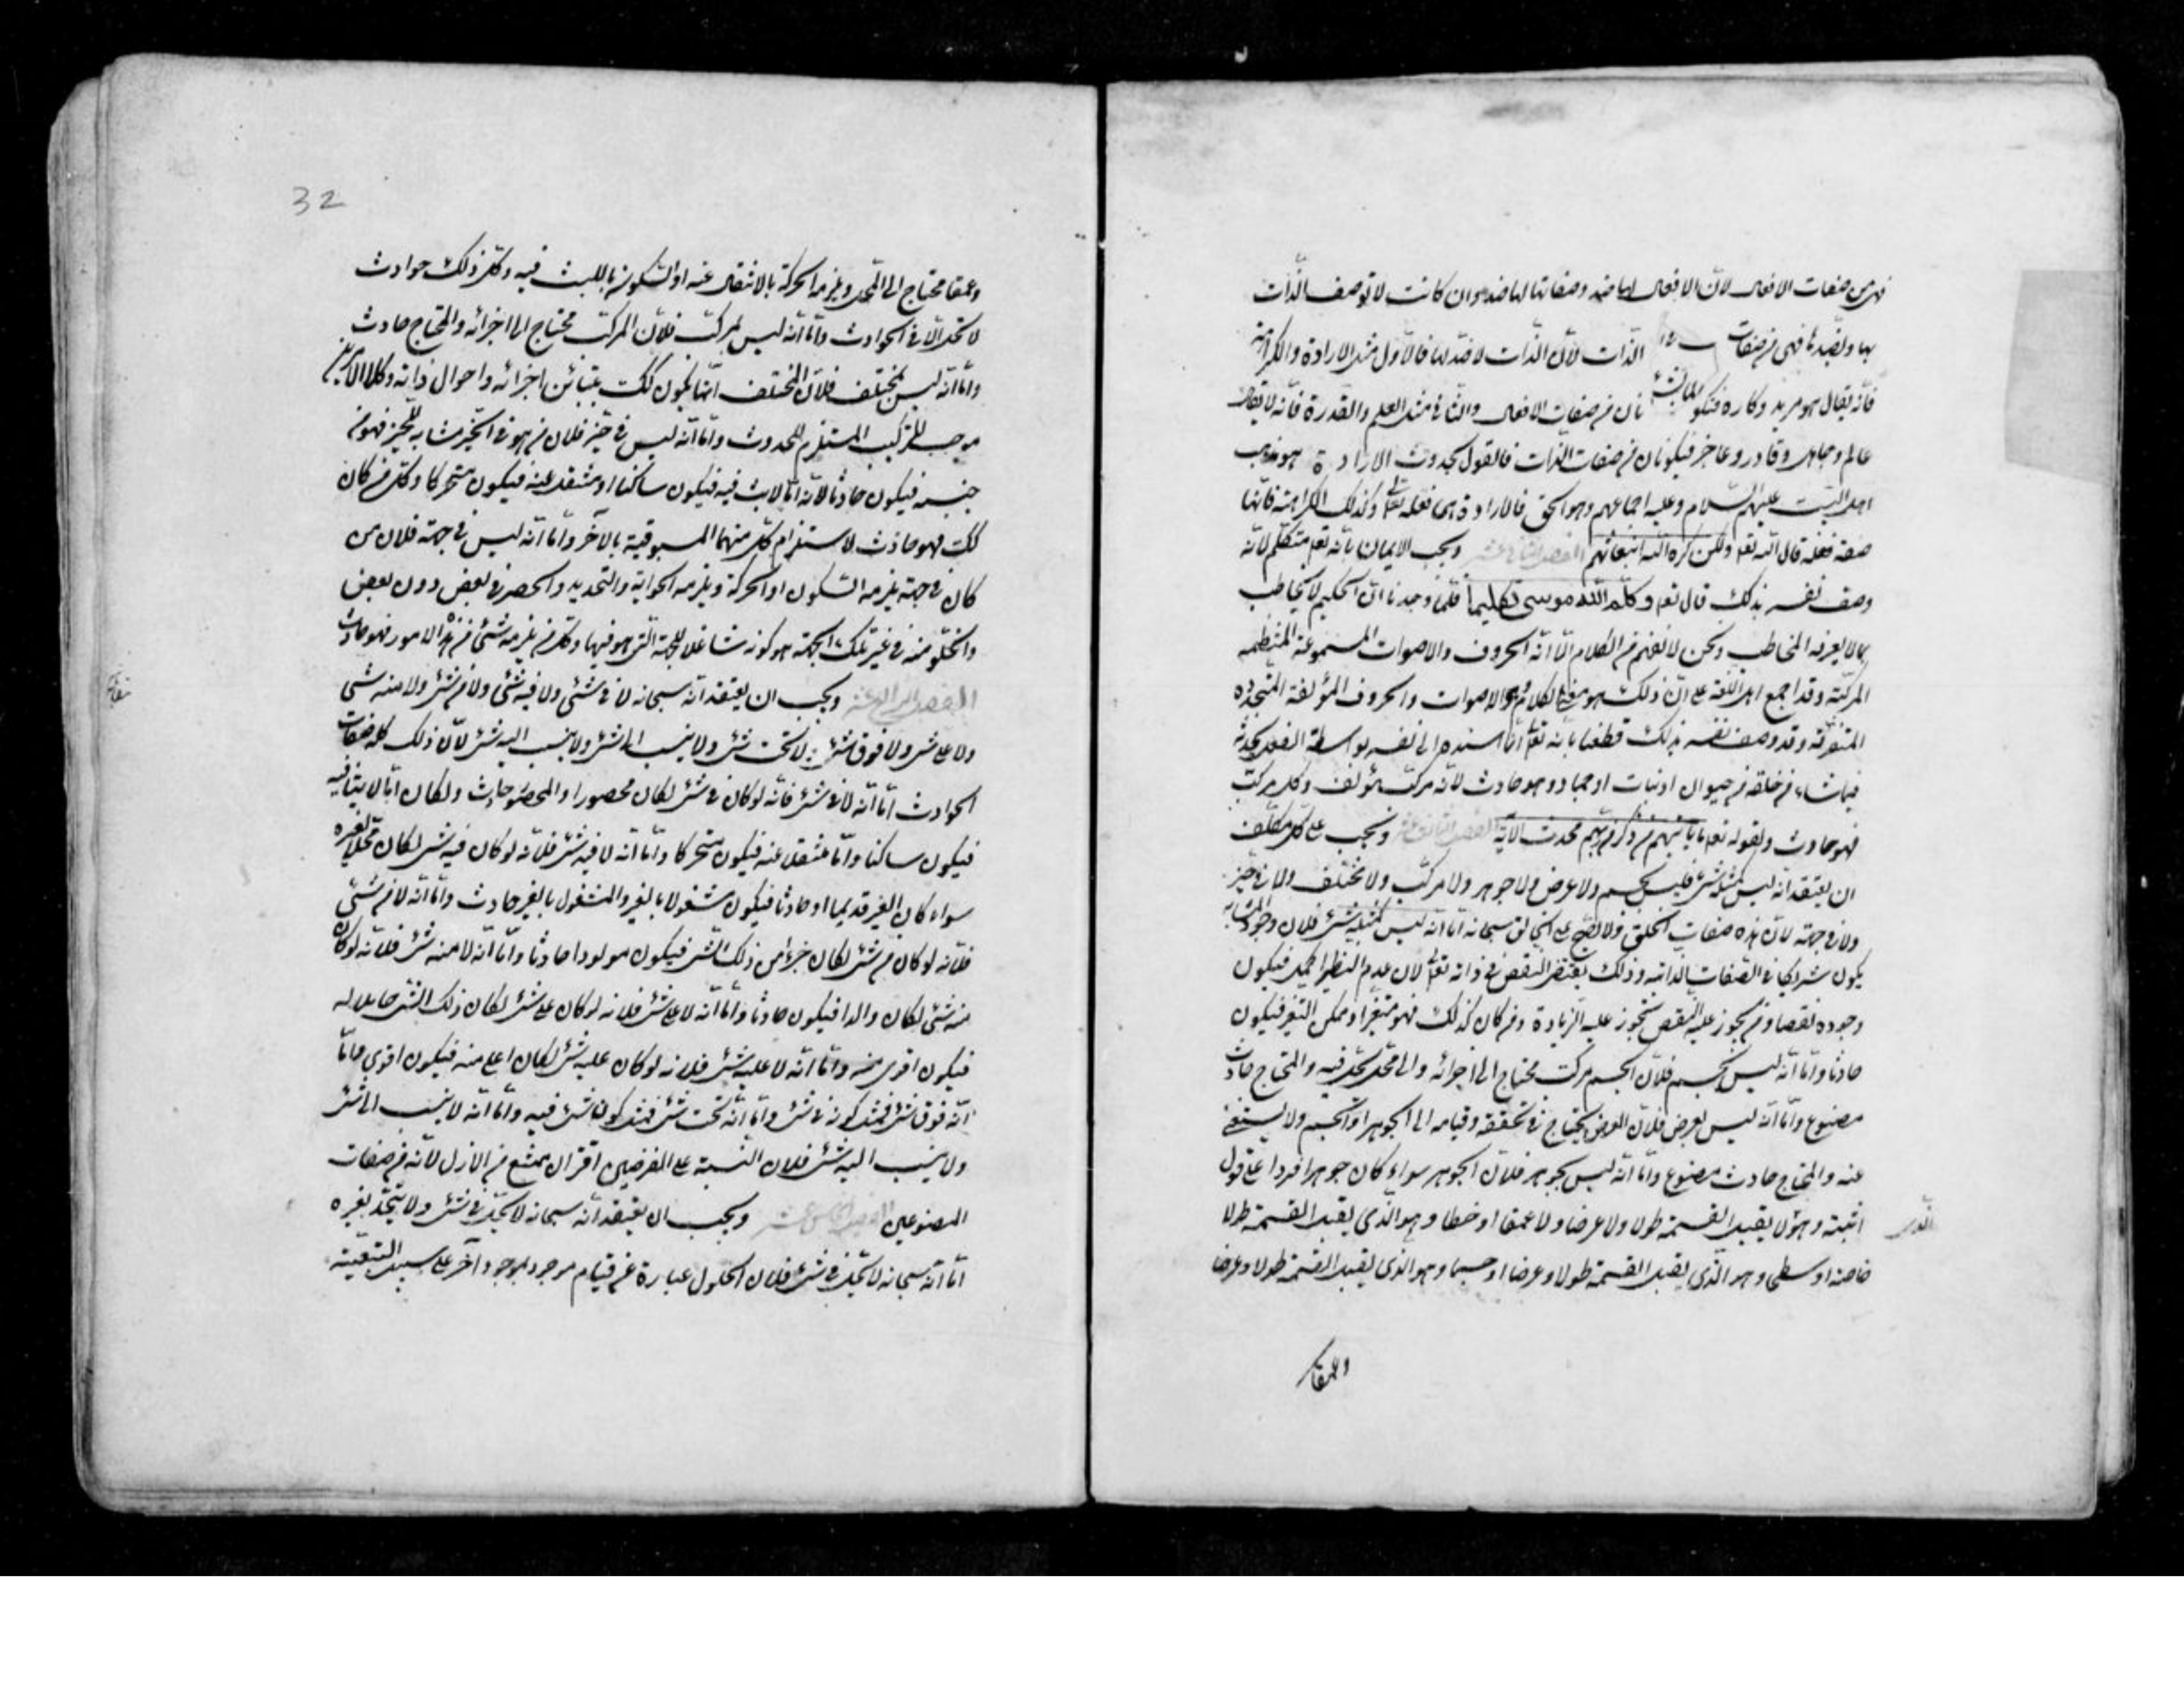 فهى من صفات الافعال لان الافعال لها ضد وصفاتها لها ضد وان كانت لا توصف الذات
بها وبضدها فهى من صفات الذات لان الذات لا ضد لها فالاول مثل الارادة والكراهة
فانه يقال هو مريد وكاره فتكونان من صفات الافعال والثانى مثل العلم والقدرة فانه لا يقال
عالم وجاهل وقادر وعاجز فيكونان من صفات الذات فالقول بحدوث الارادة هو مذهب
اهل البيت عليهم السلام وعليه اجماعهم وهو الحق فالارادة هى فعله تعالى وكذلك الكراهة فانها
صفة فعله قال الله تعالى ولكن كره الله انبعاثهم الفصل الثانى عشر ويجب الايمان بانه تعالى متكلم لانه
وصف نفسه بذلك قال تعالى وكلم الله موسى تكليما فلما وجدنا ان الحكيم لا يخاطب
بما لا يعرفه المخاطب ونحن لا نفهم من الكلام الا انه الحروف والاصوات المسموعة المنتظمة
المركبة وقد اجمع اهل اللغة على ان ذلك هو معنى الكلام وهو الاصوات والحروف المؤلفة المتجدده
المتفرقة وقد وصف نفسه بذلك قطعنا بانه تعالى انما اسنده الى نفسه بواسطة الفعل يحدثه
فيما شاء من خلقه من حيوان او نبات او جماد وهو حادث لانه مركب مؤلف وكل مركب
فهو حادث ولقوله تعالى ما ياتيهم من ذكر من ربهم محدث الاية الفصل الثالث عشر ويجب على كل مكلف
ان يعتقد انه ليس كمثله شئ فليس بجسم ولا عرض ولا جوهر ولا مركب ولا مختلف ولا فى حيز
ولا فى جهة لان هذه صفات الخلق ولا تصح على الخالق سبحانه اما انه ليس كمثله شئ فلان وجود المشابه
يكون شريكا فى الصفات الذاتيه وذلك يقتضى النقص فى ذاته تعالى لان عدم النظير اكمل فيكون
وجوده نقصا ومن يجوز عليه النقص تجوز عليه الزيادة ومن كان كذلك فهو متغير او ممكن التغير فيكون
حادثا واما انه ليس بجسم فلان الجسم مركب محتاج الى اجزائه والى محل يحل فيه والمحتاج حادث
مصنوع واما انه ليس بعرض فلان العرض يحتاج فى تحققه وقيامه الى الجوهر او الجسم ولا يستغنى
عنه والمحتاج حادث مصنوع واما انه ليس بجوهر فلان الجوهر سواء كان جوهرا فردا على قول
اثبته وهو لا يقبل القسمة طولا ولا عرضا ولا عمقا او خطا وهو الذى يقبل القسمة طولا
خاصة او سطحا وهو الذى يقبل القسمة طولا وعرضا او جسما وهو الذى يقبل القسمة طولا وعرضا
وعمقا
32
وعمقا محتاج الى المحل ويلزمه الحركة بالانتقال عنه او السكون باللبث فيه وكل ذلك حوادث
لا تحل الا فى الحوادث واما انه ليس بمركب فلان المركب محتاج الى اجزائه والمحتاج حادث
واما انه ليس بمختلف فلان المختلف انما يكون كك بتباين اجزائه واحوال ذاته وكلا الامرين
موجب للتركيب المستلزم للحدوث واما انه ليس فى حيز فلان من هو فى الحيز مشابه للحيز فهو من
جنسه فيكون حادثا لانه اما لابث فيه فيكون ساكنا او منتقل عنه فيكون متحركا وكل من كان
كك فهو حادث لاستلزام كل منهما المسبوقية بالآخر واما انه ليس فى جهة فلان من
كان فى جهة يلزمه السكون او الحركة ويلزمه الحواية والتحديد والحصر فى بعض دون بعض
والخلو منه فى غير تلك الجهة هو كونه شاغلا للجهة التى هو فيها وكل من يلزمه شئ من هذه الامور فهو حادث
الفصل الرابع عشر ويجب ان يعتقد انه سبحانه لا فى شئ ولا فيه شئ ولا من شئ ولا منه شئ
ولا على شئ ولا فوق شئ ولا تحت شئ ولا ينسب الى شئ ولا ينسب اليه شئ لان ذلك كله صفات
الحوادث اما انه لا فى شئ فانه لو كان فى شئ لكان محصورا والمحصور حادث ولكان اما لابثا فيه
فيكون ساكنا واما منتقل عنه فيكون متحركا واما انه لا فيه شئ فلانه لو كان فيه شئ لكان محلا لغيره
سواء كان الغير قديما او حادثا فيكون مشغولا بالغير والمشغول بالغير حادث واما انه لا من شئ
فلانه لو كان من شئ لكان جزءا من ذلك الشئ فيكون مولودا حادثا واما انه لا منه شئ فلانه لو كان
منه شئ لكان والدا فيكون حادثا واما انه لا على شئ فلانه لو كان على شئ لكان ذلك الشئ حاملا له
فيكون اقوى منه واما انه لا عليه شئ فلانه لو كان عليه شئ لكان اعلى منه فيكون اقوى واما
انه فوق شئ فمثل كونه فى شئ واما انه تحت شئ فمثل كون شئ فيه واما انه لا ينسب الى شئ
ولا ينسب اليه شئ فلان النسبة على الفرضين اقتران يمتنع من الازل لانه من صفات
المصنوعين الفصل الخامس عشر ويجب ان يعتقد انه سبحانه لا يحل فى شئ ولا يتحد بغيره
اما انه سبحانه لا يحل فى شئ فلان الحلول عبارة عن قيام موجود بموجود آخر على سبيل التبعية